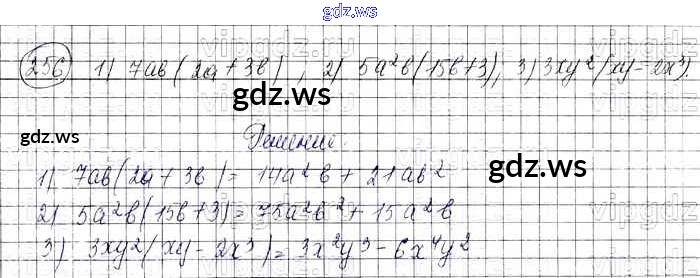 gdz.ws
256 1) 7ab(2a+3b), 2) 5a²b(15b+3), 3) 3xy²(xy-2x³).
gdz.ws
Решение.
gdz.ws
1) 7ab(2a+3b)=14a²b+21ab²
2) 5a²b(15b+3)=75a²b²+15a²b
3) 3xy²(xy-2x³)=3x²y³-6x⁴y²
gdz.ws